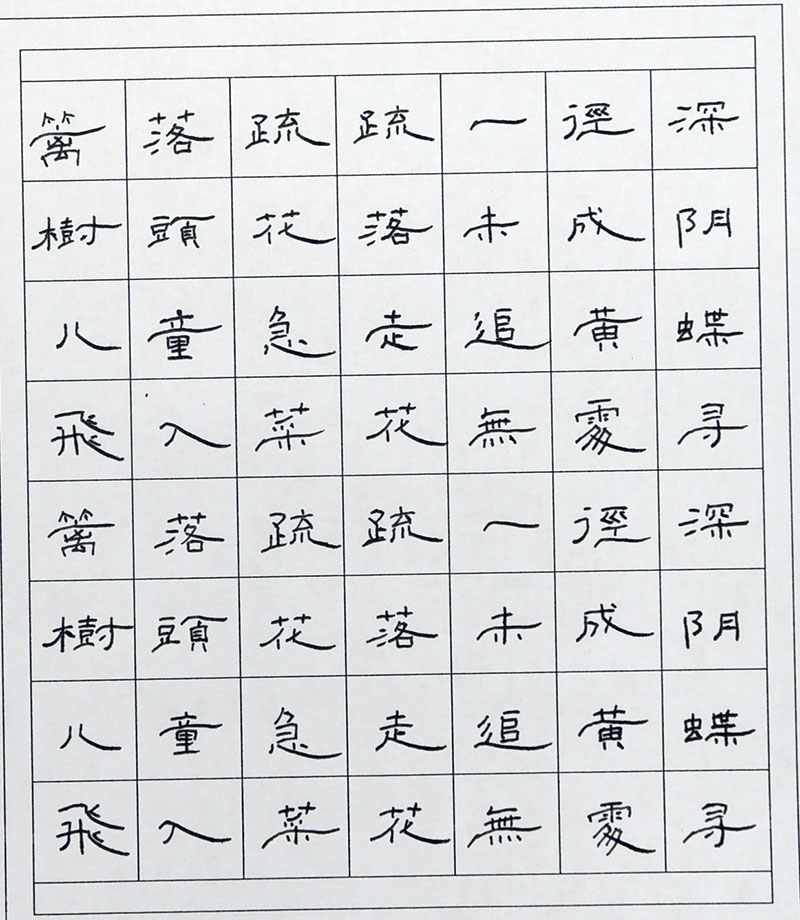 篱落疏疏一徑深
樹頭花落未成阴
儿童急走追黃蝶
飛入菜花無處寻
篱落疏疏一徑深
樹頭花落未成阴
儿童急走追黃蝶
飛入菜花無處寻